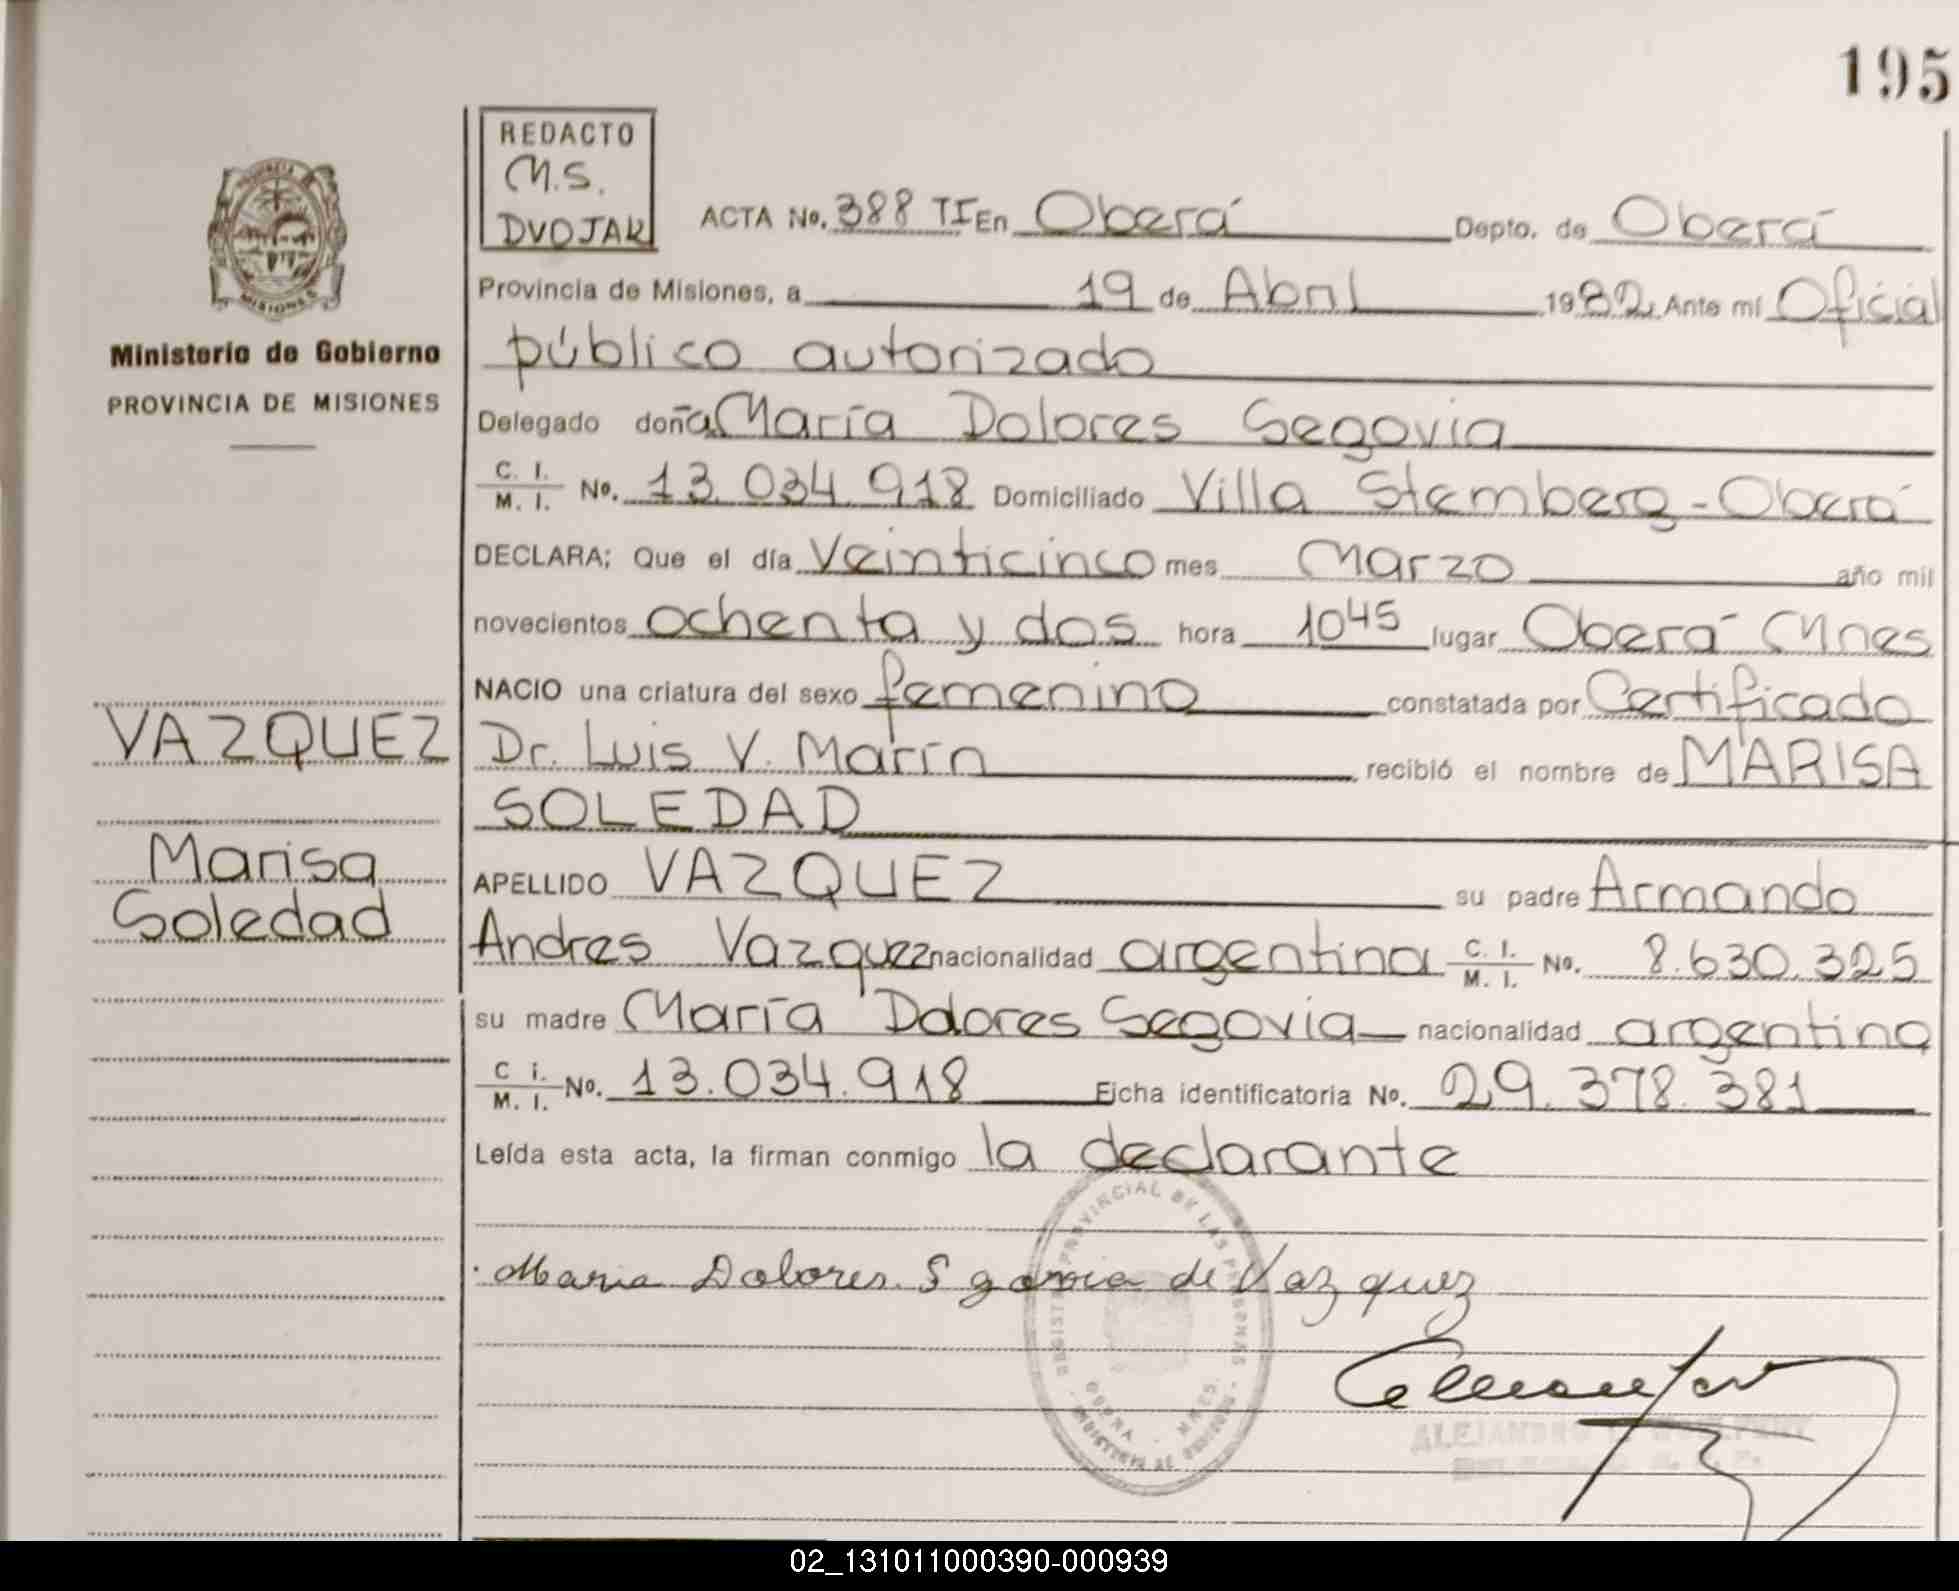 195
REDACTO
M.S.
DVOJAK
ACTA No. 388 TI En Oberá Depto. de Oberá
Provincia de Misiones, a 19 de Abril 1982. Ante mí Oficial
público autorizado
Ministerio de Gobierno
PROVINCIA DE MISIONES
MISIONES
Delegado doña María Dolores Segovia
C. I.
M. I. No. 13.034.918 Domiciliado Villa Stemberg - Oberá
DECLARA; Que el día Veinticinco mes Marzo año mil
novecientos ochenta y dos hora 10 45 lugar Oberá Mnes
NACIO una criatura del sexo femenino constatada por Certificado
Dr. Luis V. Marín recibió el nombre de MARISA
SOLEDAD
VAZQUEZ
Marisa
Soledad
APELLIDO VAZQUEZ su padre Armando
Andres Vazquez nacionalidad argentina C. I. M. I. No. 8.630.325
su madre María Dolores Segovia nacionalidad argentina
C i. M. I. No. 13.034.918 Ficha identificatoria No. 29.378.381
Leída esta acta, la firman conmigo la declarante
Maria Dolores Sgovia de Vazquez
REGISTRO PROVINCIAL DE LAS PERSONAS
ALEJANDRO
02_131011000390-000939